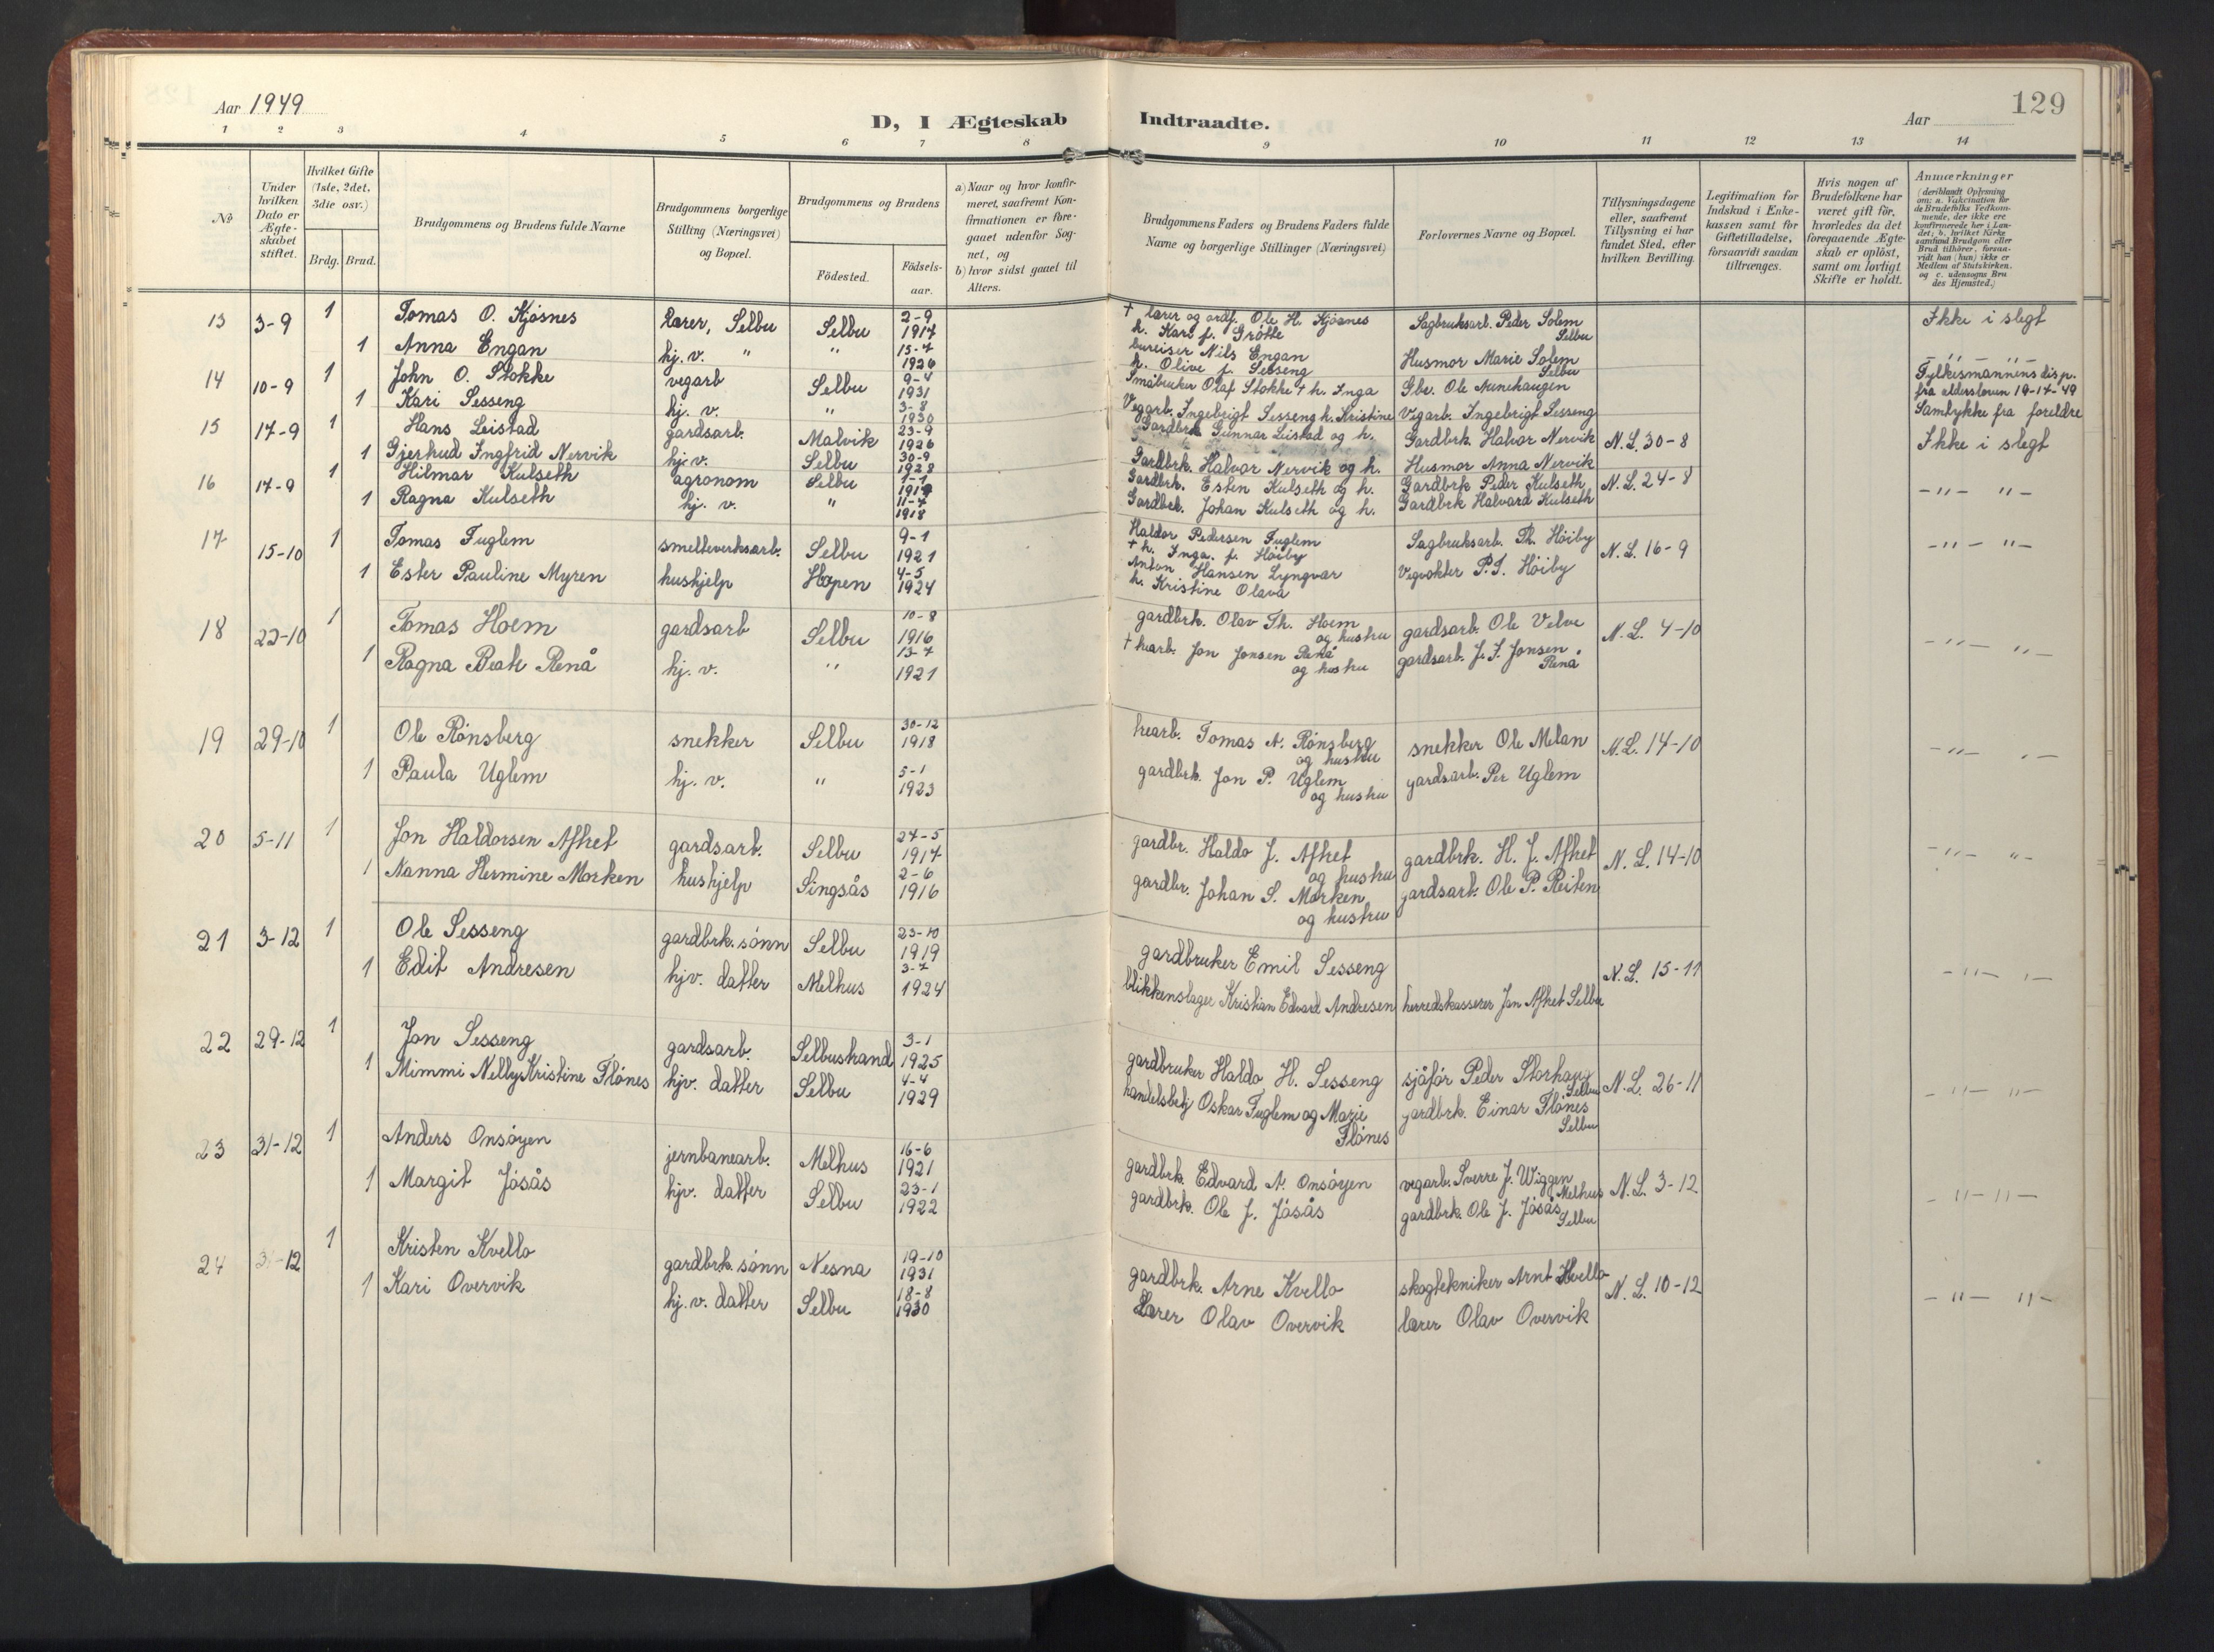 Aar 1949
D, I Ægteskab Indtraadte.
Aar
129
1 2 3 4 5 6 7 8 9 10 11 12 13 14
No
Under hvilken Dato er Ægteskabet stiftet.
Hvilket Gifte (1ste, 2det, 3die osv.)
Brdg. Brud.
Brudgommens og Brudens fulde Navne
Brudgommens borgerlige Stilling (Næringsvei) og Bopæl.
Brudgommens og Brudens
Födested.
Födsels-aar.
a) Naar og hvor konfirmeret, saafremt Konfirmationen er foregaaet udenfor Sognet, og
b) hvor sidst gaaet til Alters.
Brudgommens Faders og Brudens Faders fulde Navne og borgerlige Stillinger (Næringsvei)
Forlovernes Navne og Bopæl.
Tillysningsdagene eller, saafremt Tillysning ei har fundet Sted, efter hvilken Bevilling.
Legitimation for Indskud i Enkekassen samt for Giftetilladelse, forsaavidt saadan tiltrænges.
Hvis nogen af Brudefolkene har været gift för, hvorledes da det foregaaende Ægteskab er oplöst, samt om lovligt Skifte er holdt.
Anmærkninger
(deriblandt Oplysning om: a. Vakcination for de Brudefolks Vedkommende, der ikke ere konfirmerede her i Landet; b. hvilket Kirkesamfund Brudgom eller Brud tilhörer, forsaavidt han (hun) ikke er Medlem af Statskirken, og c. udensogns Brudes Hjemsted.)
13 3-9 1 Tomas O. Kjøsnes Lærer, Selbu Selbu 2-9 1917 † lærer og ordf. Ole H. Kjøsnes h. Kari f. Grøtte Sagbruksarb. Peder Solem Selbu Ikke i slegt
1 Anna Engan hj. v. " " 15-7 1926 bureiser Nils Engan h. Olive f. Sesseng Husmor Marie Solem Selbu - " - " -
14 10-9 1 John O. Stokke vegarb Selbu 9-4 1931 Småbruker Olaf Stokke † h. Inga Gbr. Ole Fylkesmannens disp. fra aldersloven 19-17-49
1 Kari Sesseng hj. v. " 3-8 1930 Vegarb. Ingebrigt Sesseng h. Kristine Vegarb. Ingebrigt Sesseng Samtykke fra foreldre
15 17-9 1 Hans Leistad gardsarb. Malvik 23-9 1926 Gardbrk Gunnar Leistad og h. Gardbrk. Halvar Nervik N.L. 30-8 Ikke i slegt
1 Gjerhud Ingfrid Nervik hj. v. Selbu 30-9 1928 Gardbrk. Halvar Nervik og h. Husmor Anna Nervik
16 17-9 1 Hilmar Kulseth agronom Selbu 1-1 1919 Gardbrk. Esten Kulseth og h. Gardbrk Peder Kulseth N.L. 24-8 - " - " -
1 Ragna Kulseth hj. v. " 11-7 1918 Gardbrk. Johan Kulseth og h. Gardbrk Halvard Kulseth
17 15-10 1 Tomas Fuglem smelteverksarb. Selbu 9-1 1921 Haldor Pedersen Fuglem † h. Inga f. Høiby Sagbruksarb. Th. Høiby N.L. 16-9 - " - " -
1 Ester Pauline Myren hushjelp Hopen 4-5 1924 Anton Hansen Lyngvær h. Kristine Olava Vegvokter P.T. Høiby
18 22-10 1 Tomas Hoem gardsarb Selbu 10-8 1916 gardbrk. Olav Th. Hoem og hustru gardsarb. Ole Velve N.L. 4-10 - " - " -
1 Ragna Beate Renå hj. v. " 13-7 1921 † hearb. Jon Jonsen Renå og hustru gardsarb. J. J. Jonsen Renå
19 29-10 1 Ole Rønsberg snekker Selbu 30-12 1918 hearb. Tomas N. Rønsberg og hustru snekker Ole Melan N.L. 14-10 - " - " -
1 Paula Uglem hj. v. " 5-1 1923 gardbrk. Jon P. Uglem og hustru gardsarb. Per Uglem
20 5-11 1 Jon Haldorsen Aftret gardsarb. Selbu 24-5 1917 gardbr. Haldo J. Aftret og hustru gardbrk. H. J. Aftret N.L. 14-10 - " - " -
1 Nanna Hermine Morken hushjelp Singsås 2-6 1916 gardbr. Johan S. Morken og hustru gardsarb. Ole P. Reiten
21 3-12 1 Ole Sesseng gardbrk. sønn Selbu 23-10 1919 gardbruker Emil Sesseng N.L. 15-11 - " - " -
1 Edit Andresen hjv. datter Melhus 3-7 1924 blikkenslager Kristian Edvard Andresen herredskasserer Jon Aftret Selbu
22 29-12 1 Jon Sesseng gardsarb. Selbustrand 3-1 1925 gardbruker Haldo H. Sesseng sjåfør Peder Storhaug Selbu N.L. 26-11 - " - " -
1 Mimmi Nelly Kristine Flønes hjv. datter Selbu 4-4 1929 handelsbetj Oskar Fuglem og Marie Flønes gardbrk. Einar Flønes Selbu
23 31-12 1 Anders Onsøyen jernbanearb. Melhus 16-6 1921 gardbrk. Edvard A. Onsøyen vegarb. Sverre J. Wiggen Melhus N.L. 3-12 - " - " -
1 Margit Jøsås hjv. datter Selbu 23-1 1922 gardbrk. Ole J. Jøsås gardbrk. Ole J. Jøsås Selbu
24 31-12 1 Kristen Kvello gardbrk. sønn Nesna 19-10 1931 gardbrk. Arne Kvello skogtekniker Arnt Kvello N.L. 10-12 - " - " -
1 Kari Overvik hj. v. datter Selbu 18-8 1930 Lærer Olav Overvik lærer Olav Overvik